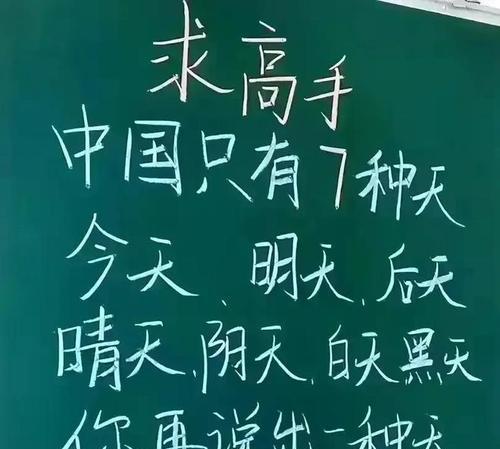 求高手
中国只有7种天
今天、明天、后天
晴天、阴天、白天黑天
你再说出一种天